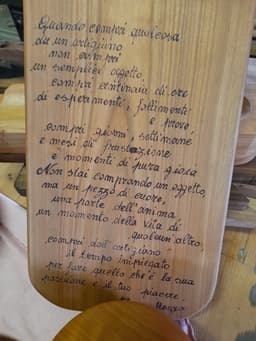 Quando compri qualcosa
da un artigiano
non compri
un semplice oggetto,
compri centinaia di ore
di esperimenti, fallimenti
e prove,
compri giorni, settimane
e mesi di frustrazione
e momenti di pura gioia
Non stai comprando un oggetto,
ma un pezzo di cuore,
una parte dell'anima
un momento della vita di
qualcun altro.
compri dall'artigiano
il tempo impiegato
per fare quello che è la sua
passione e il tuo piacere.